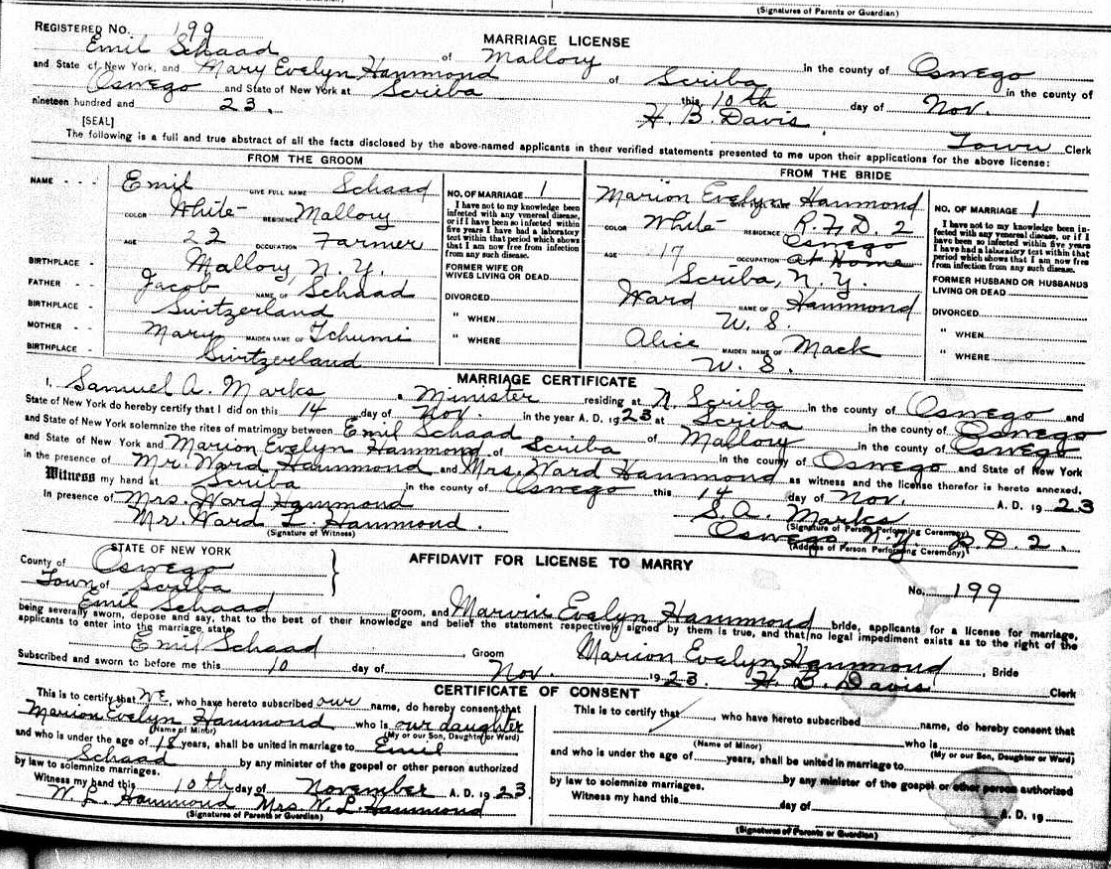 (Signatures of Parents or Guardian)
REGISTERED NO. 199
MARRIAGE LICENSE
Emil Schaad of Mallory in the county of Oswego
and State of New York, and Mary Evelyn Hammond of Scriba in the county of
Oswego and State of New York at Scriba this 10th day of Nov.
nineteen hundred and 23.
H. B. Davis,
[SEAL] Town Clerk
The following is a full and true abstract of all the facts disclosed by the above-named applicants in their verified statements presented to me upon their applications for the above license:
FROM THE GROOM
NAME Emil GIVE FULL NAME Schaad
COLOR White RESIDENCE Mallory
AGE 22 OCCUPATION Farmer
BIRTHPLACE Mallory, N. Y.
FATHER Jacob NAME OF Schaad
BIRTHPLACE Switzerland
MOTHER Mary MAIDEN NAME OF Tchumi
BIRTHPLACE Switzerland
NO. OF MARRIAGE 1
I have not to my knowledge been
infected with any venereal disease,
or if I have been so infected within
five years I have had a laboratory
test within that period which shows
that I am now free from infection
from any such disease.
FORMER WIFE OR
WIVES LIVING OR DEAD
DIVORCED
" WHEN
" WHERE
FROM THE BRIDE
Marion Evelyn Hammond
COLOR White RESIDENCE R. F. D. 2
Oswego
AGE 17 OCCUPATION At Home
Scriba, N. Y.
Ward NAME OF Hammond
U. S.
Alice MAIDEN NAME OF Mack
U. S.
NO. OF MARRIAGE 1
I have not to my knowledge been in-
fected with any venereal disease, or if I
have been so infected within five years
I have had a laboratory test within that
period which shows that I am now free
from infection from any such disease.
FORMER HUSBAND OR HUSBANDS
LIVING OR DEAD
DIVORCED
" WHEN
" WHERE
MARRIAGE CERTIFICATE
I, Samuel A. Marks a Minister residing at N. Scriba in the county of Oswego and
State of New York do hereby certify that I did on this 14 day of Nov. in the year A. D. 1923 at Scriba in the county of Oswego
and State of New York solemnize the rites of matrimony between Emil Schaad of Mallory in the county of Oswego
and State of New York and Marion Evelyn Hammond of Scriba in the county of Oswego and State of New York
in the presence of Mr. Ward Hammond and Mrs. Ward Hammond as witness and the license therefor is hereto annexed.
Witness my hand at Scriba in the county of Oswego this 14 day of Nov. A. D. 1923
In presence of Mrs. Ward Hammond S. A. Marks
Mr. Ward L. Hammond. (Signature of Person Performing Ceremony)
(Signature of Witness) Oswego, N. Y. R. D. 2.
(Address of Person Performing Ceremony)
STATE OF NEW YORK
County of Oswego
Town of Scriba
AFFIDAVIT FOR LICENSE TO MARRY
No. 199
Emil Schaad groom, and Marion Evelyn Hammond bride, applicants for a license for marriage,
being severally sworn, depose and say, that to the best of their knowledge and belief the statement respectively signed by them is true, and that no legal impediment exists as to the right of the
applicants to enter into the marriage state.
Emil Schaad, Groom Marion Evelyn Hammond, Bride
Subscribed and sworn to before me this 10 day of Nov. 1923. H. B. Davis Clerk
CERTIFICATE OF CONSENT
This is to certify that we, who have hereto subscribed our name, do hereby consent that
Marion Evelyn Hammond who is our daughter
(Name of Minor) (My or our Son, Daughter or Ward)
and who is under the age of 18 years, shall be united in marriage to Emil
Schaad by any minister of the gospel or other person authorized
by law to solemnize marriages.
Witness my hand this 10th day of November A. D. 1923.
W. L. Hammond Mrs. W. L. Hammond
(Signatures of Parents or Guardian)
This is to certify that, who have hereto subscribed name, do hereby consent that
who is
(Name of Minor) (My or our Son, Daughter or Ward)
and who is under the age of years, shall be united in marriage to
by any minister of the gospel or other person authorized
by law to solemnize marriages.
Witness my hand this day of A. D. 19
(Signatures of Parents or Guardian)